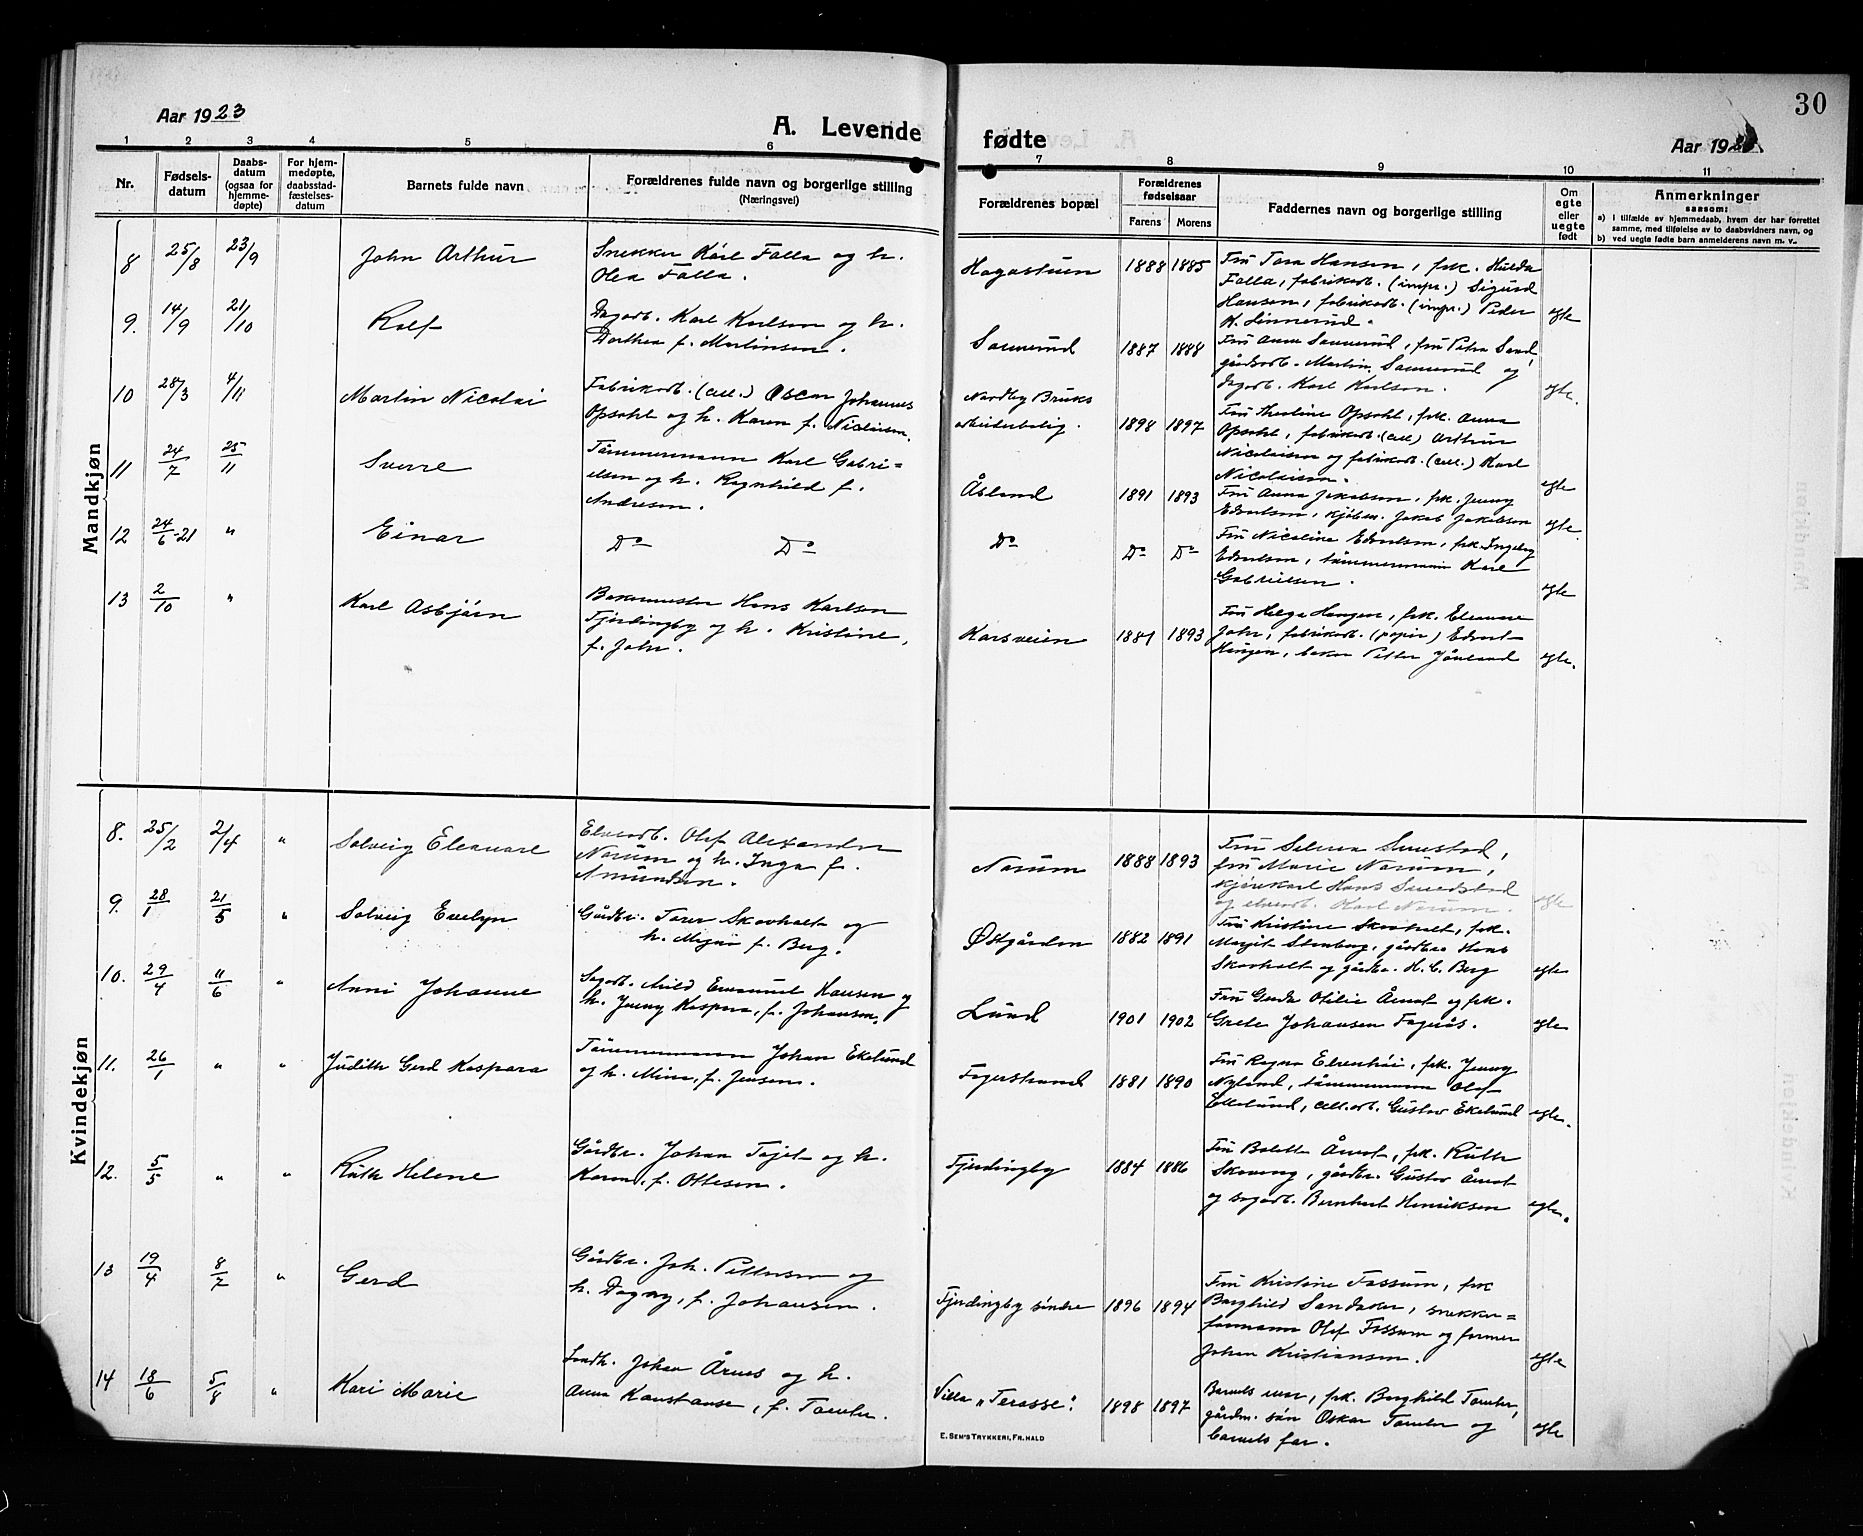 30
Aar 1923
A. Levende fødte
Aar 19
1 2 3 4 5 6 7 8 9 10 11
Nr.
Fødsels-
datum
Daabs-
datum
(ogsaa for
hjemme-
døpte)
For hjem-
medøpte,
daabsstad-
fæstelses-
datum
Barnets fulde navn
Forældrenes fulde navn og borgerlige stilling
(Næringsvei)
Forældrenes bopæl
Forældrenes
fødselsaar
Farens Morens
Faddernes navn og borgerlige stilling
Om
egte
eller
uegte
født
Anmerkninger
saasom:
a) I tilfælde av hjemmedaab, hvem der har forrettet
samme, med tilføielse av to daabsvidners navn, og
b) ved uegte fødte barn anmelderens navn m. v..
Mandkjøn
8 25/8 23/9 John Arthur
Snekker Karl Falla og h.
Olea Falla.
Hagastuen 1888 1885
Fru Tora Hansen, frk. Hulda
Falla, fabrikarb. (impr.) Sigurd
Hansen, fabrikarb. (impr.) Peder
K. Linnerud.
egte
9. 14/9 21/10 Rolf
Dagarb. Karl Karlsen og h.
Dorthea f. Martinsen.
Sannerud 1887 1888
Fru Anna Sannerud, fru Petra Sand
gårdsarb. Martin Sannerud og
dagarb. Karl Karlsen.
egte.
10 28/3 4/11 Martin Nicolai
Fabrikarb. (cell.) Oscar Johannes
Opsahl og h. Karen f. Nicolaisen.
Nordby Bruks
arbeiderbolig. 1898 1897
Fru Thestine Opsahl, frk. Anna
Opsahl, fabrikarb. (cell) Arthur
Nicolaisen og fabrikarb. (cell.) Karl
Nicolaisen.
egte
11 24/7 25/11 Sverre
Tømmermann Karl Gabri=
elsen og h. Ragnhild f.
Andresen.
Åsland 1891 1893
Fru Anna Jakobsen, frk. Jenny
Edvartsen, kjøbm. Jakob Jakobsen
egte.
12 24/6-21 " Einar
Do Do
Do Do Do
Fru Nicoline Edvartsen, frk. Ingeborg
Edvartsen, tømmermann Karl
Gabrielsen.
egte
13 2/10 " Karl Asbjørn
Bakermester Hans Karlsen
Fjerdingby og h. Kristine,
f. Jahr.
Korsveien 1881 1893
Fru Helga Haugen, frk. Eleonore
Jahr, fabrikarb. (papir) Edvart
Haugen, baker Petter Jönland
egte.
Kvindekjøn
8. 25/2 2/4 " Solveig Eleanore
Elvearb. Olaf Alexander
Norum og h. Inga f.
Amundsen.
Norum 1888 1893
Fru Selma Smestad,
fru Marie Norum,
kjørekarl Hans Smedstad
og elvearb. Karl Norum.
egte
9. 28/1 21/5 " Solveig Evelyn
Gårdbr. Torer Skovholt og
h. Mejni f. Berg.
Østgården 1882 1891
Fru Kristine Skovholt, frk.
Margit Stenberg, gårdbr. Hans
Skovholt og gårdbr. H. C. Berg
egte
10. 29/4 11/6 " Anni Johanne
Sagarb. Arild Emanuel Hansen og
h. Jenny Kaspara, f. Johansen.
Lund 1901 1902
Fru Gerda Otilie Årnot og frk.
Grete Johansen Fagerås.
egte
11. 26/1 " " Judith Gerd Kaspara
Tømmermann Johan Ekelund
og h. Mina, f. Jensen.
Fagerstrand 1881 1890
Fru Ragna Elvenhøi, frk. Jenny
Nyland, tømmermann Olaf
Ekelund, cell.arb. Gustav Ekelund
egte.
12. 5/5 " " Ruth Helene
Gårdbr. Johan Tajet og h.
Karen, f. Ottesen.
Fjerdingby 1884 1886
Fru Bolett Årnot, frk. Ruth
Skoveng, gårdbr. Gustav Årnot
og sagarb. Bernhart Henriksen
egte.
13 19/4 8/7 " Gerd
Gårdbr. Joh. Pettersen og
h. Dagny, f. Johansen.
Fjerdingby søndre 1896 1894
Fru Kristine Fossum, frk
Borghild Sandaker, snekker=
formann Olaf Fossum og former
Johan Kristiansen.
egte
14 18/6 5/8 " Kari Marie
Landh. Johan Årnes og h.
Anna Konstanse, f. Tomter.
Villa "Terasse". 1898 1897
Barnets mor, frk. Borghild Tomter,
gårdm. søn Oskar Tomter og
barnets far.
egte
E. SEM'S TRYKKERI, FR. HALD